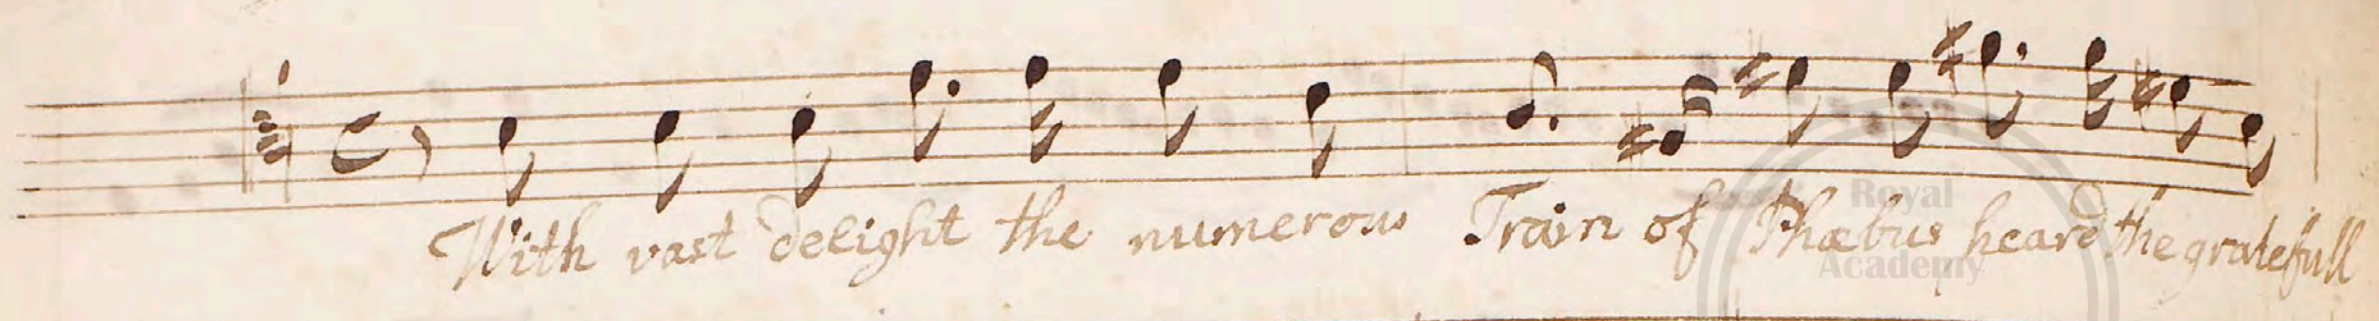 With vast delight the numerous Train of Phæbus heard the gratefull
Royal
Academy